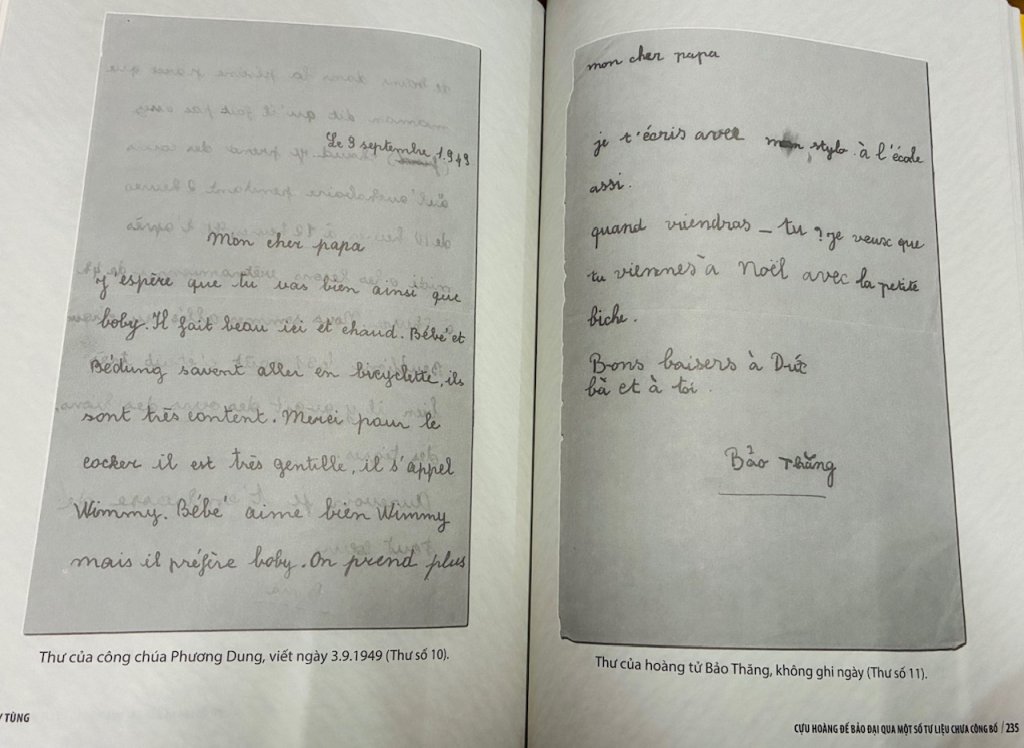 Le 3 septembre 1.949
Mon cher papa
J'espère que tu vas bien ainsi que
boby. Il fait beau ici et chaud. Bébé et
Bédung savent aller en bicyclette, ils
sont très content. Merci pour le
cocker il est très gentille, il s'appel
Wimmy. Bébé aime bien Wimmy
mais il préfère boby. On prend plus
Thư của công chúa Phương Dung, viết ngày 3.9.1949 (Thư số 10).
TÙNG
mon cher papa
je t'écris avec mon stylo à l'école
assi.
quand viendras-tu? je veux que
tu viennes à Noël avec la petite
biche.
Bons baisers à Dức
bà et à toi.
Bảo Thăng
Thư của hoàng tử Bảo Thăng, không ghi ngày (Thư số 11).
CỰU HOÀNG ĐẾ BẢO ĐẠI QUA MỘT SỐ TƯ LIỆU CHƯA CÔNG BỐ / 235